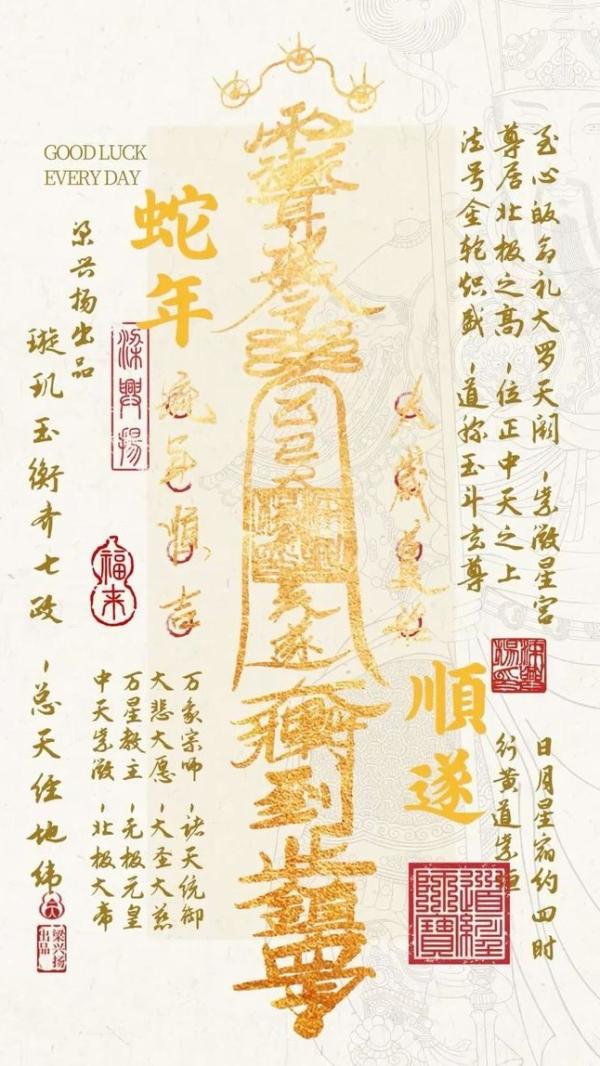 GOOD LUCK
EVERY DAY
蛇年
順遂
至心皈命礼大罗天阙-紫微星宫
尊居北极之高-位正中天之上
法号金轮炽盛-道称玉斗玄尊
日月星宿约四时
行黄道紫垣
梁兴扬出品
璇玑玉衡齐七政-总天经地纬
万象宗师-诸天统御
大悲大愿-大圣大慈
万星教主-无极元皇
中天紫微-北极大帝
流年順吉
太歲星君
梁興揚
福来
道經師寶
梁兴扬
出品